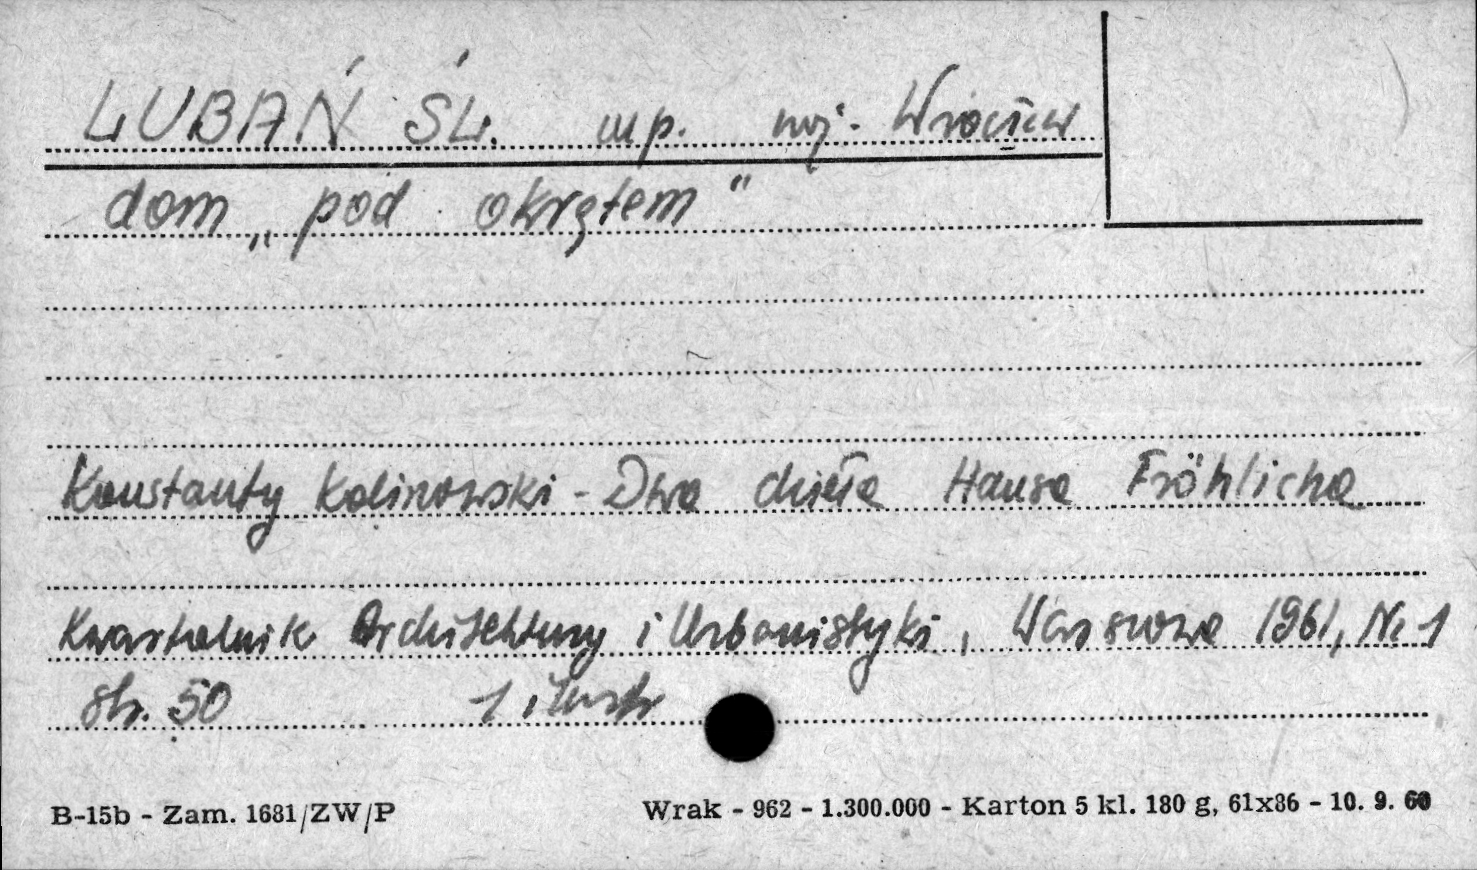 LUBAŃ ŚL. mp. woj. Wrocław
dom „pod okrętem"
Konstanty Kalinowski - Dwa dzieła Hansa Fröhlicha
Kwartalnik Architektury i Urbanistyki, Warszawa 1961, Nr 1
str. 50 1 ilustr
B-15b - Zam. 1681/ZW/P Wrak - 962 - 1.300.000 - Karton 5 kl. 180 g, 61x86 - 10. 9. 60